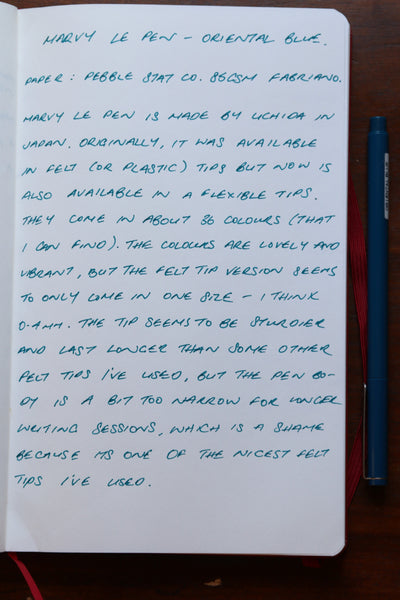 MARVY LE PEN - ORIENTAL BLUE.
PAPER : PEBBLE STAT CO. 85GSM FABRIANO.
MARVY LE PEN IS MADE BY UCHIDA IN
JAPAN. ORIGINALLY, IT WAS AVAILABLE
IN FELT (OR PLASTIC) TIPS BUT NOW IS
ALSO AVAILABLE IN A FLEXIBLE TIPS.
THEY COME IN ABOUT 36 COLOURS (THAT
I CAN FIND). THE COLOURS ARE LOVELY AND
VIBRANT, BUT THE FELT TIP VERSION SEEMS
TO ONLY COME IN ONE SIZE - I THINK
0.4MM. THE TIP SEEMS TO BE STURDIER
AND LAST LONGER THAN SOME OTHER
FELT TIPS I'VE USED, BUT THE PEN BO-
DY IS A BIT TOO NARROW FOR LONGER
WRITING SESSIONS, WHICH IS A SHAME
BECAUSE ITS ONE OF THE NICEST FELT
TIPS I'VE USED.